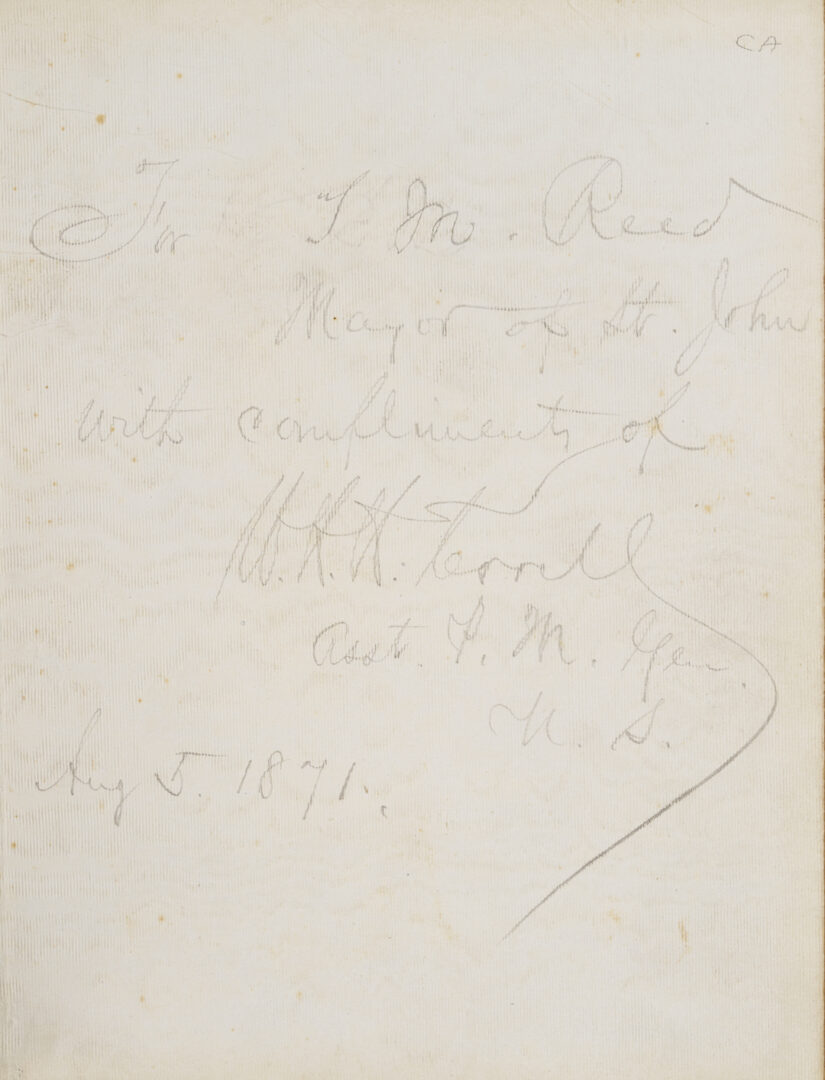 CA
For T. M. Reed
Mayor of St. John
with compliments of
W. H. H. Terrell
Asst. P. M. Gen.
U. S.
Aug 5. 1871.